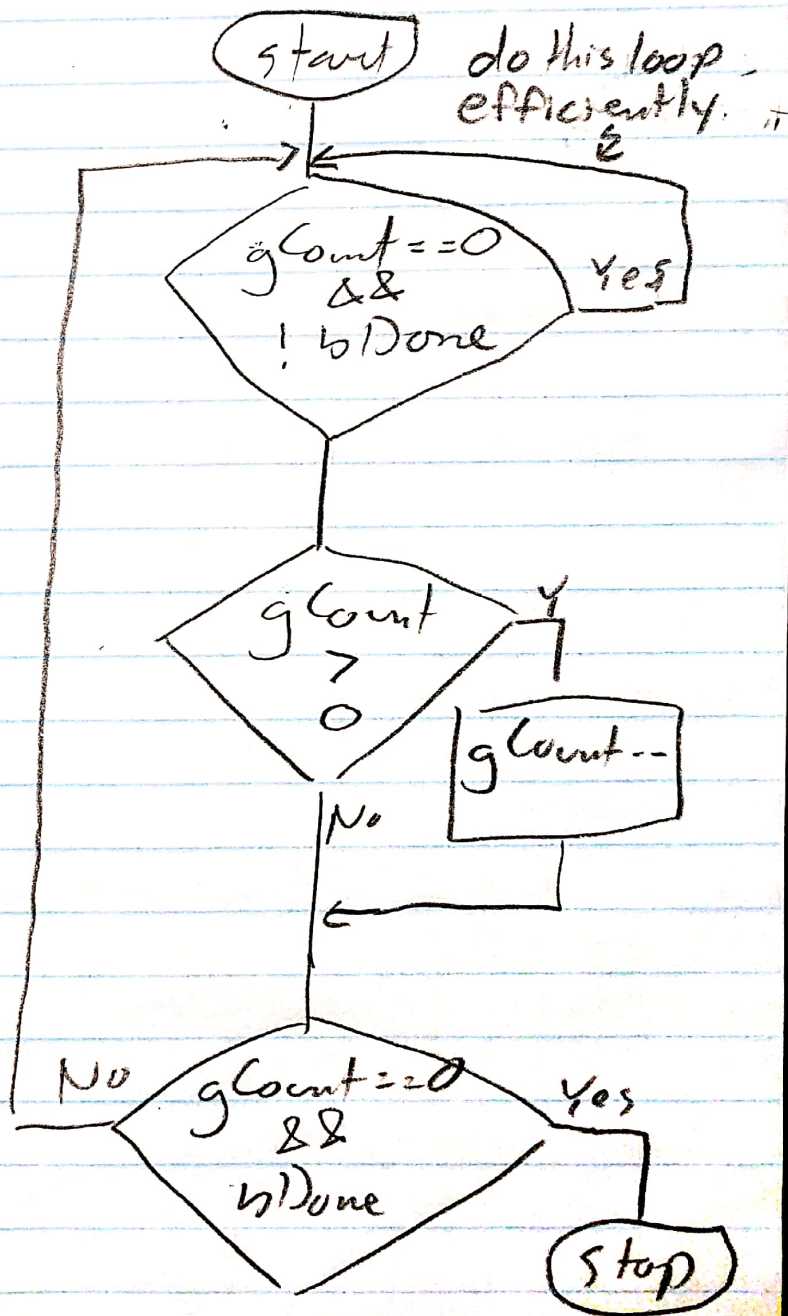 start
do this loop
efficiently.
gCount==0
&&
! bDone
Yes
gCount
>
0
Y
gCount--
No
gCount==0
&&
bDone
No
Yes
stop